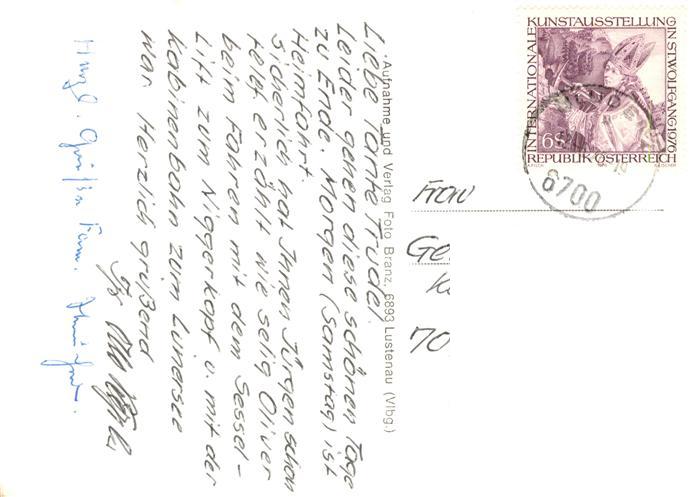 Liebe Tante Trudel.
Leider gehen diese schönen Tage
zu Ende. Morgen (Samstag) ist
Heimfahrt.
Sicherlich hat Ihnen Jürgen schon
telf. erzählt wie selig Oliver
beim Fahren mit dem Sessel-
Lift zum Niggerkopf u. mit der
Kabinenbahn zum Lünersee
war Herzlich grüßend
Ihr Otto
Herzl. Grüße Fam.
Aufnahme und Verlag Foto Branz, 6893 Lustenau (Vlbg.)
INTERNATIONALE KUNSTAUSSTELLUNG IN ST. WOLFGANG 1976
6S
REPUBLIK ÖSTERREICH
6700
Frau
Ge
K
70